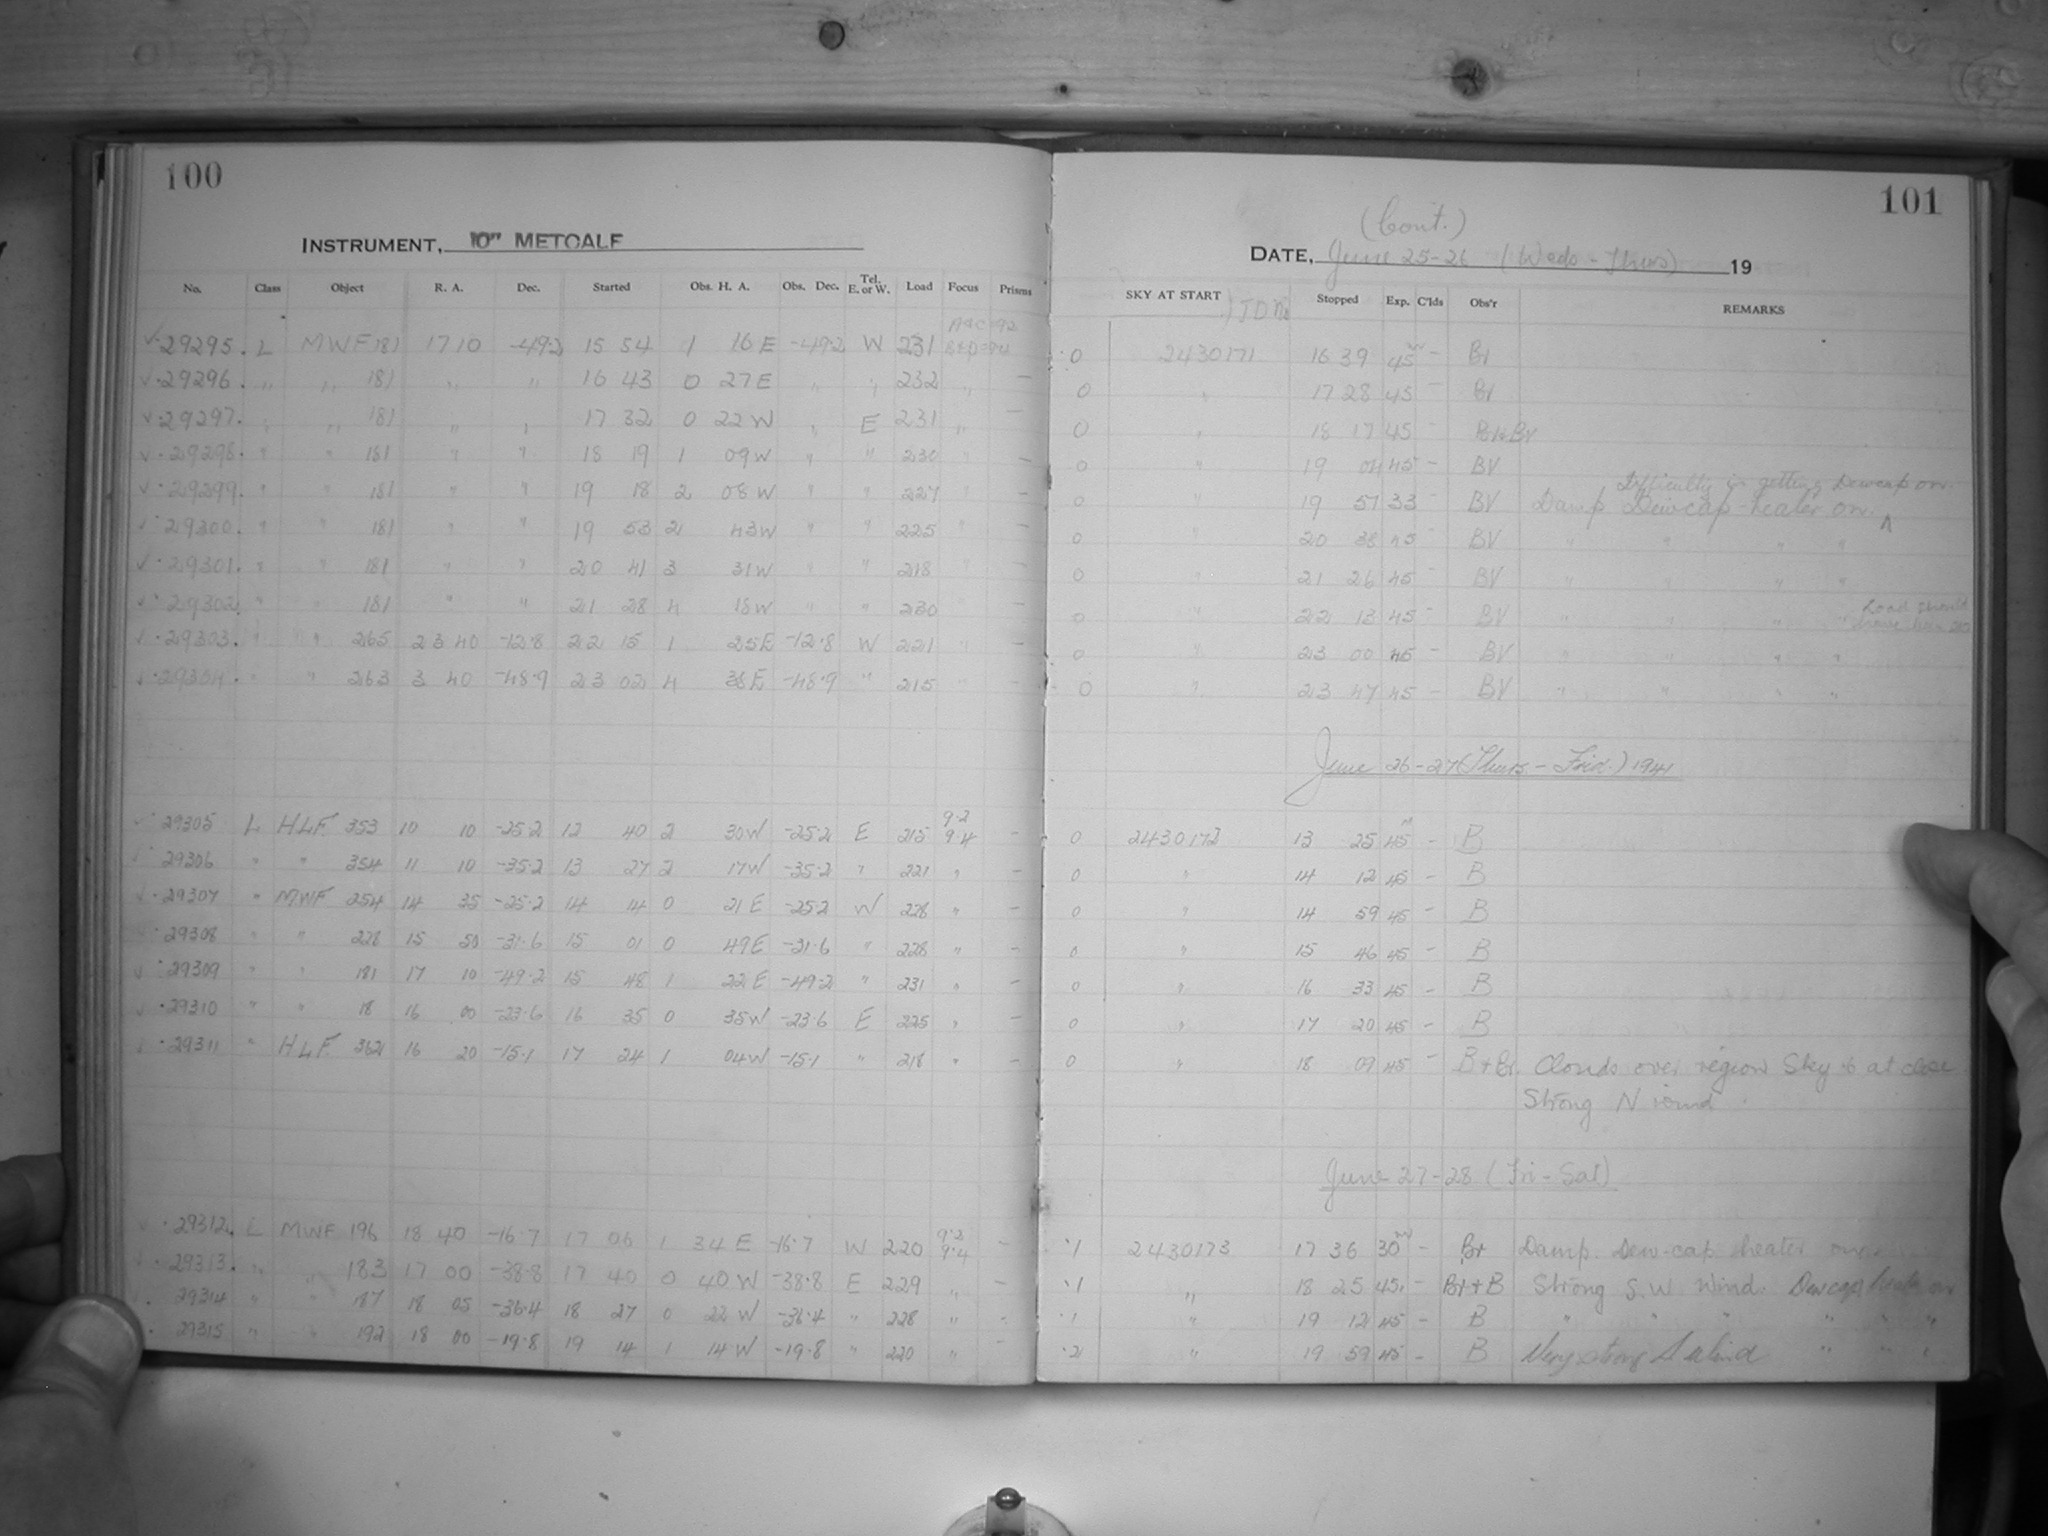 100
INSTRUMENT, 10" METCALF
No. Class Object R. A. Dec. Started Obs. H. A. Obs. Dec. Tel. E. or W. Load Focus Prisms
✓ 29295. L MWF 181 17 10 -49.2 15 54 1 16 E -49.2 W 231
✓ 29296. " " 181 " " 16 43 0 27 E " " 232 " -
✓ 29297. " " 181 " " 17 32 0 22 W " E 231 " -
✓ 29298. " " 181 " " 18 19 1 09 W " " 230 " -
✓ 29299. " " 181 " " 19 18 2 08 W " " 227 " -
✓ 29300. " " 181 " " 19 53 2 43 W " " 225 " -
✓ 29301. " " 181 " " 20 41 3 31 W " " 218 " -
✓ 29302. " " 181 " " 21 28 4 18 W " " 230 " -
✓ 29303. " " 265 23 40 -12.8 22 15 1 25 E -12.8 W 221 " -
✓ 29304. " " 263 3 40 -48.9 23 02 4 38 E -48.9 " 215 " -
✓ 29305 L HLF 353 10 10 -25.2 12 40 2 30 W -25.2 E 215 9.2 9.4 -
✓ 29306 " " 354 11 10 -35.2 13 27 2 17 W -35.2 " 221 " -
✓ 29307 " MWF 254 14 35 -25.2 14 14 0 21 E -25.2 W 228 " -
✓ 29308 " " 228 15 50 -31.6 15 01 0 49 E -31.6 " 228 " -
✓ 29309 " " 181 17 10 -49.2 15 48 1 22 E -49.2 " 231 " -
✓ 29310 " " 18 16 00 -23.6 16 35 0 35 W -23.6 E 225 " -
✓ 29311 " HLF 362 16 20 -15.1 17 24 1 04 W -15.1 " 218 " -
✓ 29312. L MWF 196 18 40 -16.7 17 06 1 34 E -16.7 W 220 9.2 9.4 -
✓ 29313. " " 183 17 00 -38.8 17 40 0 40 W -38.8 E 229 " -
29314 " " 187 18 05 -36.4 18 27 0 22 W -36.4 " 228 " -
29315 " " 192 18 00 -19.8 19 14 1 14 W -19.8 " 220 " -
101
(Cont.)
DATE, June 25-26 (Weds - Thurs) 19
SKY AT START J D No Stopped Exp. C'lds Obs'r REMARKS
0 2430171 16 39 45 - Br
0 " 17 28 45 - Br
0 " 18 17 45 - Br & BV
0 " 19 04 45 - BV
Difficulty in getting Dewcap on.
0 " 19 51 33 - BV Damp Dewcap heater on. ^
0 " 20 38 45 - BV " " " "
0 " 21 26 45 - BV " " " "
0 " 22 13 45 - BV " " " " Load should have been
0 " 23 00 45 - BV " " " "
0 " 23 47 45 - BV " " " "
June 26-27 (Thurs. - Frid.) 1941
0 2430172 13 25 45 - B
0 " 14 12 45 - B
0 " 14 59 45 - B
0 " 15 46 45 - B
0 " 16 33 45 - B
0 " 17 20 45 - B
0 " 18 09 45 - B + Br. Clouds over region Sky 6 at close
Strong N wind.
June 27-28 (Fri - Sat)
.1 2430173 17 36 30 - Br Damp. Dew-cap heater on.
.1 " 18 25 45 - Br + B Strong S.W Wind. Dewcap heater on
.1 " 19 12 45 - B " " " " " "
.2 " 19 59 45 - B Very strong S wind " " "